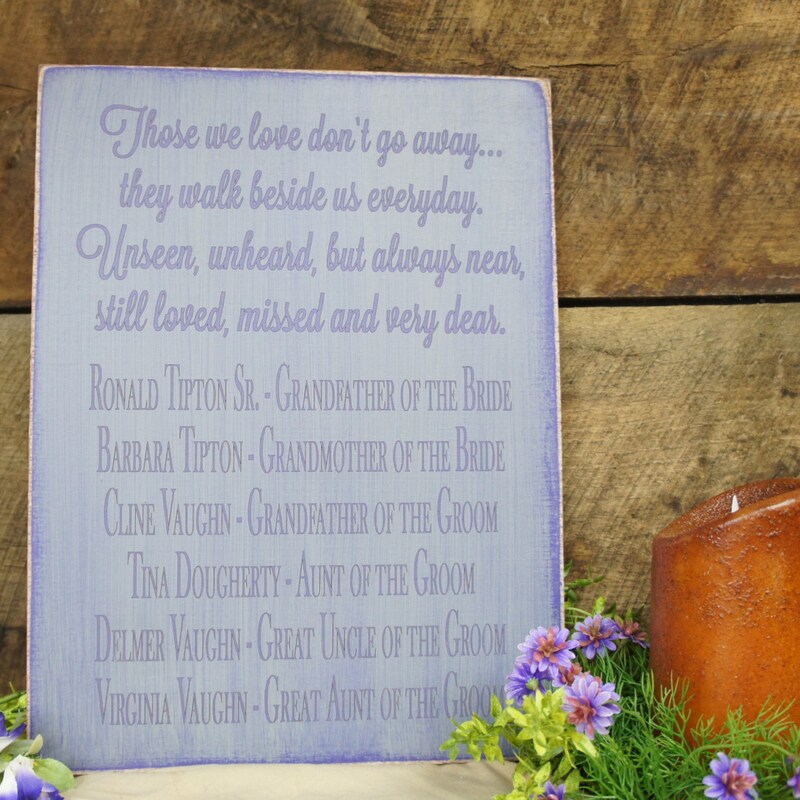 Those we love don't go away...
they walk beside us everyday.
Unseen, unheard, but always near,
still loved, missed and very dear.
Ronald Tipton Sr. - Grandfather of the Bride
Barbara Tipton - Grandmother of the Bride
Cline Vaughn - Grandfather of the Groom
Tina Dougherty - Aunt of the Groom
Delmer Vaughn - Great Uncle of the Groom
Virginia Vaughn - Great Aunt of the Groom